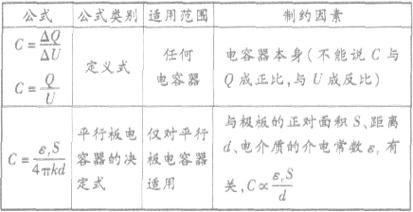 公式 公式类别 适用范围 制约因素
C=ΔQ/ΔU
C=Q/U
定义式
任何
电容器
电容器本身(不能说 C 与
Q 成正比,与 U 成反比)
C=εᵣS/4πkd
平行板电
容器的决
定式
仅对平行
板电容器
适用
与极板的正对面积 S、距离
d、电介质的介电常数 εᵣ 有
关,C∝εᵣS/d